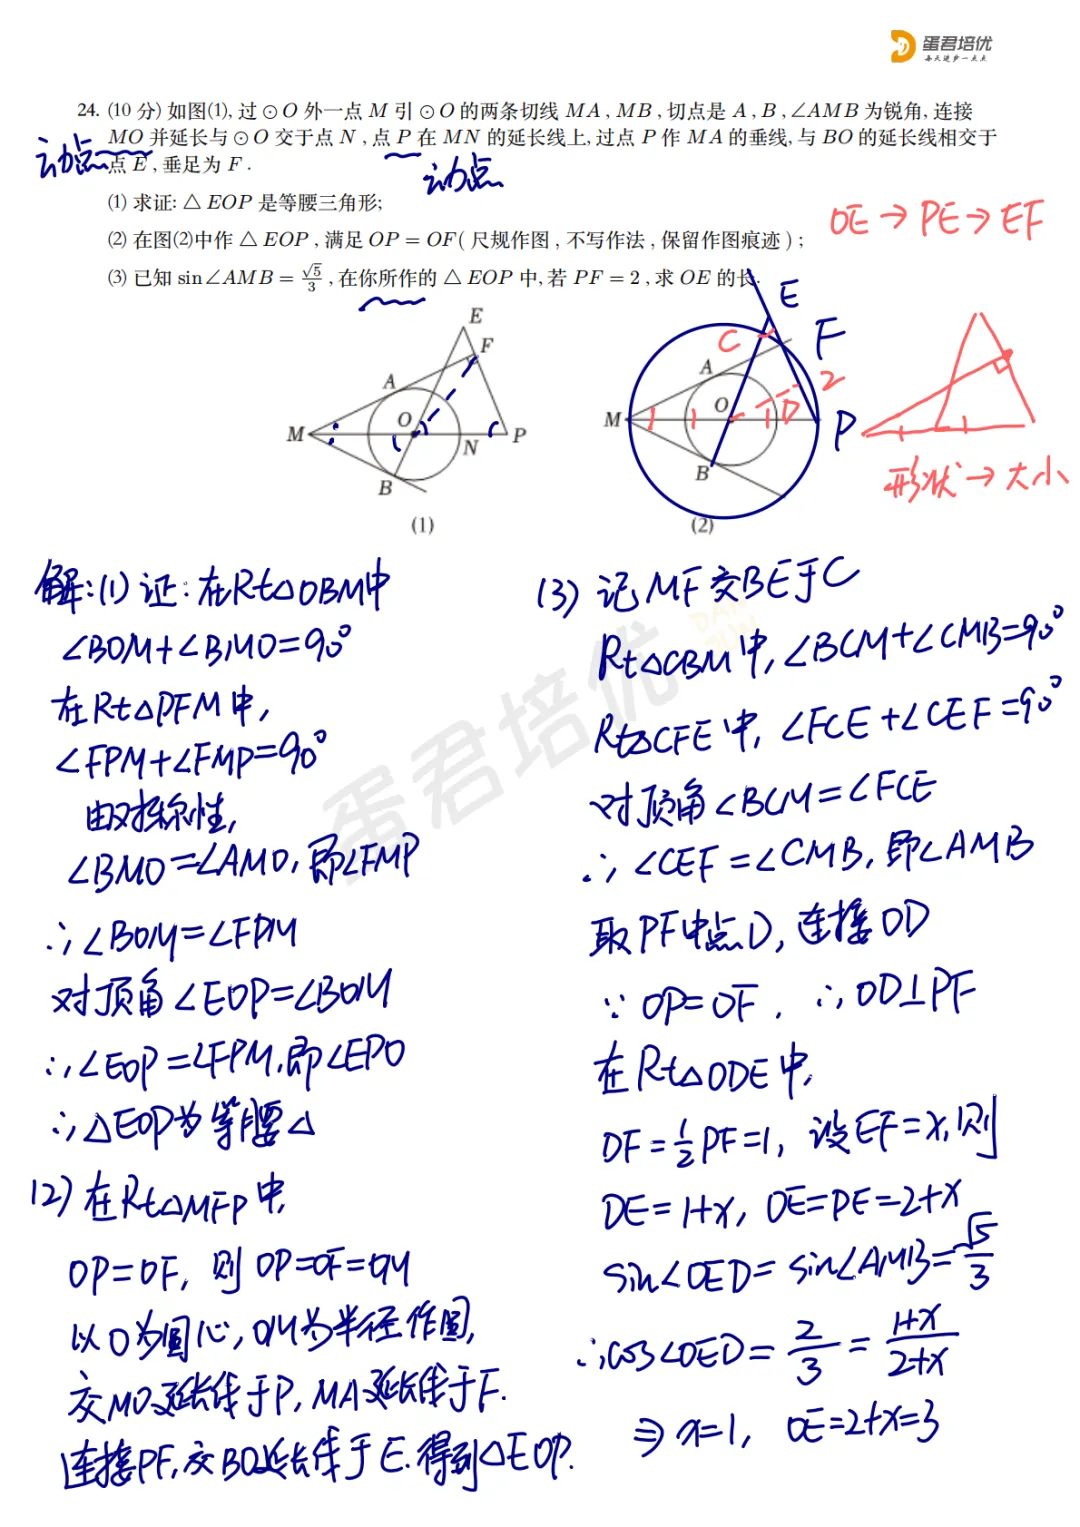 蛋君培优
每天进步一点点
24. (10 分) 如图(1), 过 ⊙O 外一点 M 引 ⊙O 的两条切线 MA, MB, 切点是 A, B, ∠AMB 为锐角, 连接
MO 并延长与 ⊙O 交于点 N, 点 P 在 MN 的延长线上, 过点 P 作 MA 的垂线, 与 BO 的延长线相交于
点 E, 垂足为 F.
动点
动点
(1) 求证: △EOP 是等腰三角形;
(2) 在图(2)中作 △EOP, 满足 OP = OF( 尺规作图, 不写作法, 保留作图痕迹);
(3) 已知 sin∠AMB = √5/3, 在你所作的 △EOP 中, 若 PF = 2, 求 OE 的长.
OE → PE → EF
E
F
A
O
M
N
P
B
(1)
E
C
F
A
2
O
D
M
P
B
(2)
形状 → 大小
解: (1) 证: 在Rt△OBM中
∠BOM+∠BMO=90°
在Rt△PFM中,
∠FPM+∠FMP=90°
由对称性,
∠BMO=∠AMO, 即∠FMP
∴∠BOM=∠FPM
对顶角∠EOP=∠BOM
∴∠EOP=∠FPM, 即∠EPO
∴△EOP为等腰△
(2) 在Rt△MFP中,
OP=OF, 则OP=OF=OM
以O为圆心, OM为半径作圆,
交MO延长线于P, MA延长线于F.
连接PF, 交BO延长线于E. 得到△EOP.
(3) 记MF交BE于C
Rt△CBM中, ∠BCM+∠CMB=90°
Rt△CFE中, ∠FCE+∠CEF=90°
对顶角∠BCM=∠FCE
∴∠CEF=∠CMB, 即∠AMB
取PF中点D, 连接OD
∵OP=OF, ∴OD⊥PF
在Rt△ODE中,
DF=1/2PF=1, 设EF=x, 则
DE=1+x, OE=PE=2+x
sin∠OED=sin∠AMB=√5/3
∴cos∠OED=2/3=(1+x)/(2+x)
⇒x=1, OE=2+x=3
蛋君培优